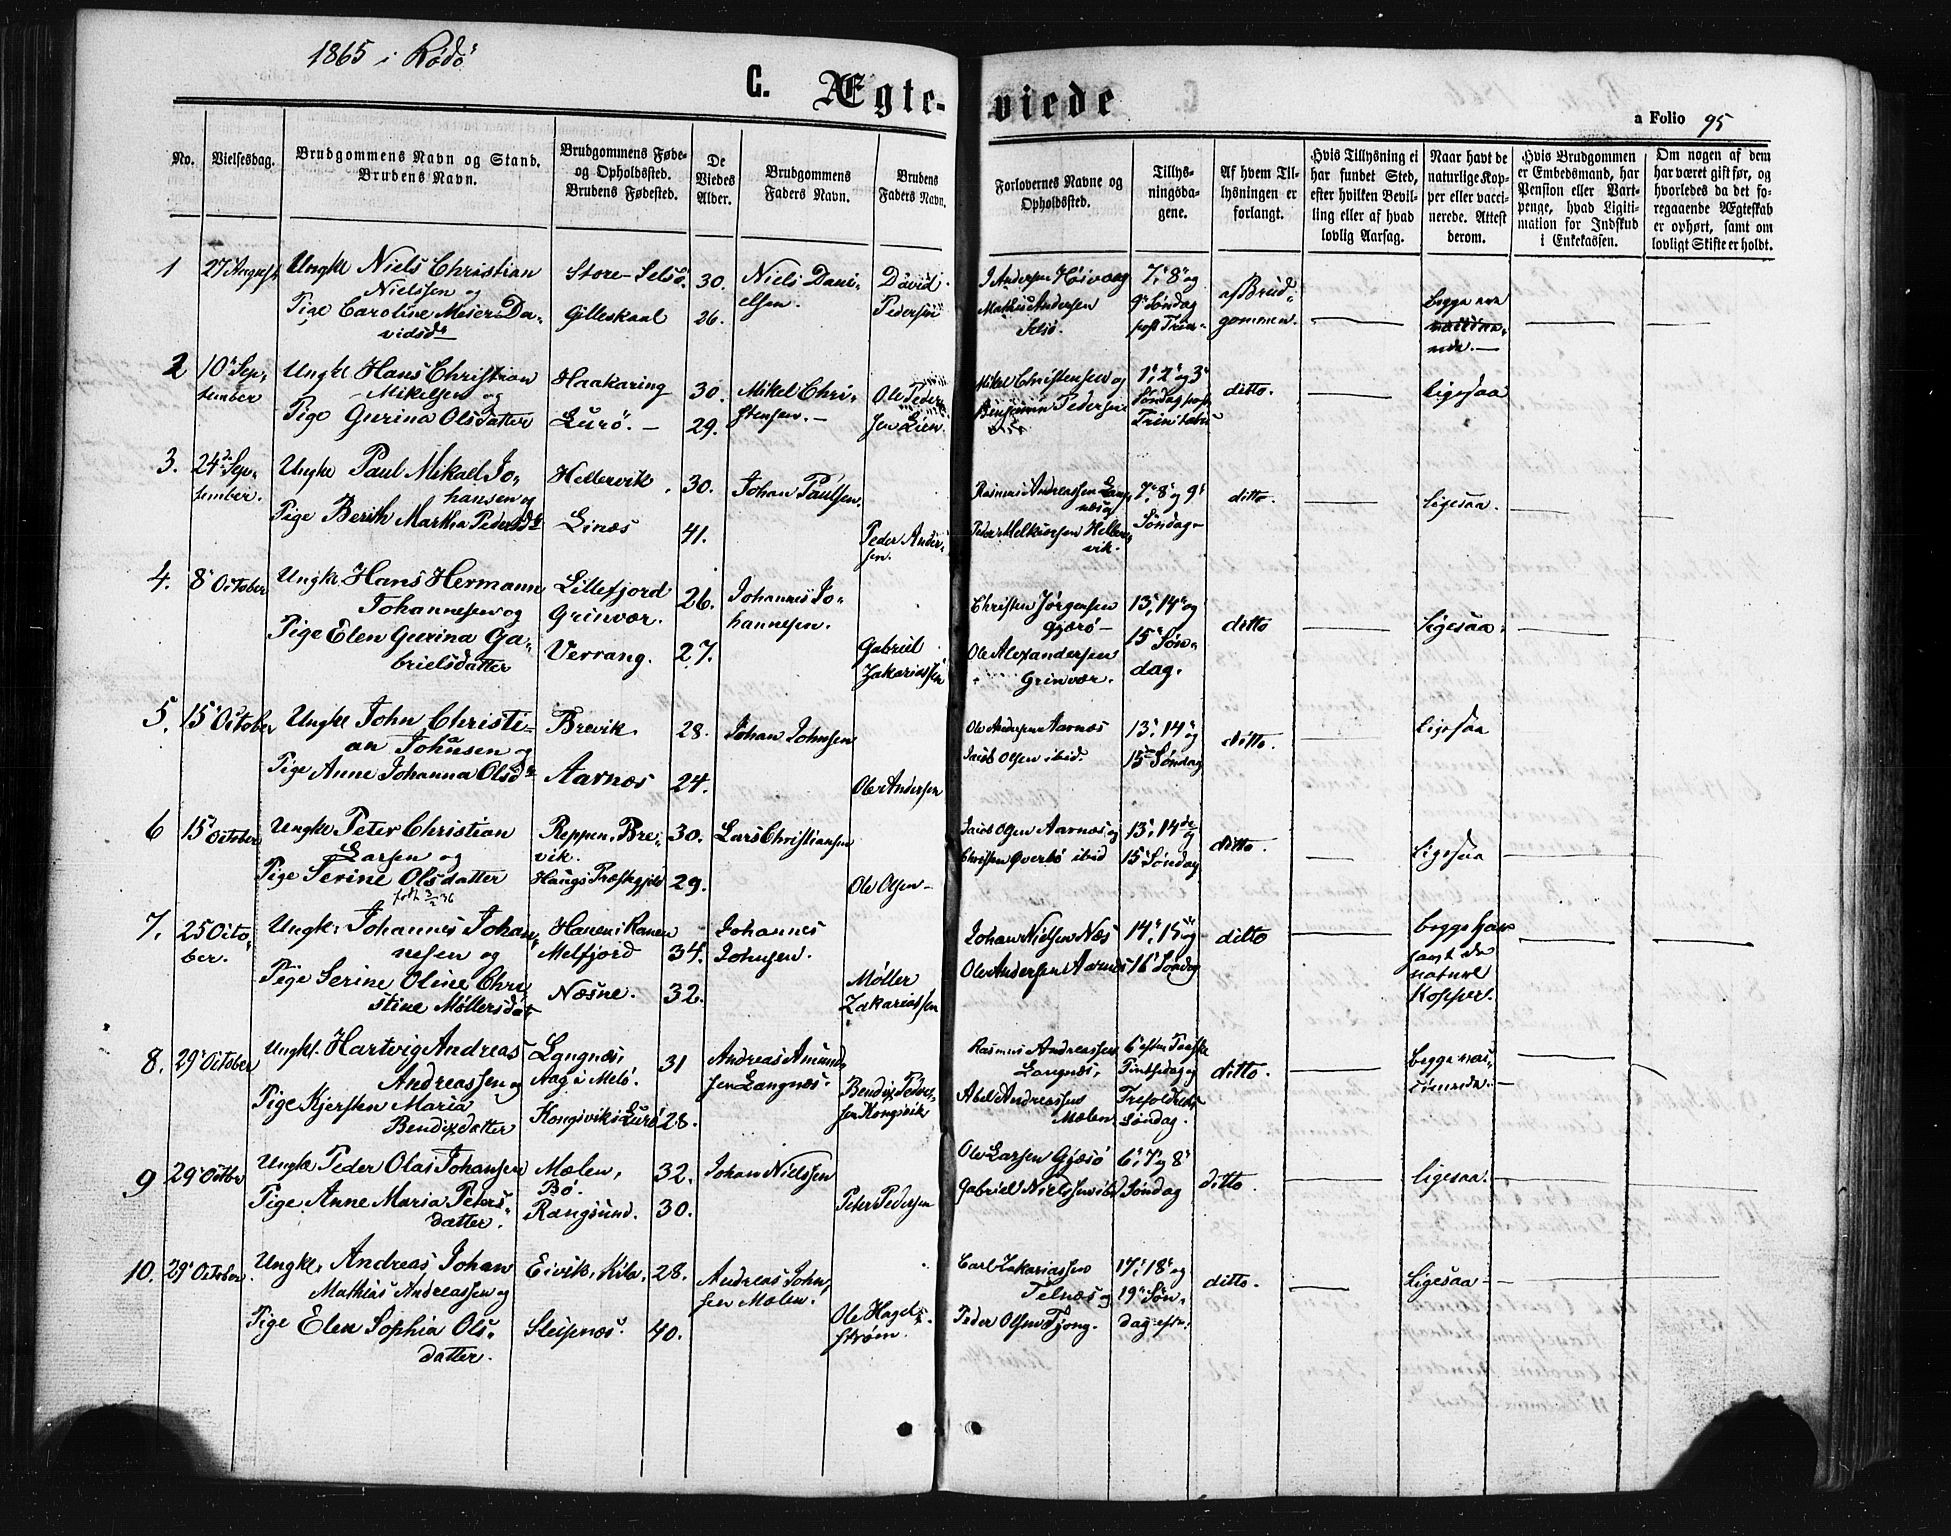 1865 i Rødø
C. Ægte-viede
a Folio 95
No.
Vielsesdag.
Brudgommens Navn og Stand.
Brudens Navn.
Brudgommens Føde-
og Opholdssted.
Brudens Fødested.
De
Viedes
Alder.
Brudgommens
Faders Navn.
Brudens
Faders Navn.
Forlovernes Navne og
Opholdssted.
Tillys-
ningsda-
gene.
Af hvem Til-
lysningen er
forlangt.
Hvis Tillysning ei
har fundet Sted,
efter hvilken Bevil-
ling eller af hvad
lovlig Aarsag.
Naar havt de
naturlige Kop-
per eller vacci-
nerede. Attest
derom.
Hvis Brudgommen
er Embedsmand, har
Pension eller Vart-
penge, hvad Ligiti-
mation for Indskud
i Enkekassen.
Om nogen af dem
har været gift før, og
hvorledes da det fo-
regaaende Ægteskab
er ophørt, samt om
lovligt Skifte er holdt.
1 27 August Ungkl Niels Christian
Nielssen og
Pige Caroline Meier Da-
vidsd
Store-Selsö. Gilleskaal
30. 26.
Niels Dani-
elsen.
David
Pedersen
J Andersen Höivaag
Mathis Andersen
Selsö.
7, 8 og
9 Söndag
post Trin
af Brud-
gommen.
begge ere
2 10 Sep-
tember
Ungkl Hans Christian
Mikelsen og
Pige Gurina Olsdatter
Haakaring
Lurö.
30. 29.
Mikel Chri-
stensen.
Ole Peder-
sen Lien
Mikel Christensen og
Benjamin Pedersen
1, 2 og 3
Söndag post
Trinitatis
ditto. Ligesaa
3. 24 Sep-
tember.
Ungkl Paul Mikael Jo-
hansen og
Pige Berith Martha Pedersd
Hellervik
Linæs
30. 41.
Johan Paulsen.
Peder Ander-
sen.
Rasmus Andreassen Lang-
næs og
Peder Melkiorsen Heller-
vik.
7, 8 og 9
Söndag
ditto. Ligesaa.
4. 8 October
Ungkl. Hans Hermann
Johannesen og
Pige Elen Gurina Ga-
brielsdatter
Lillefjord
Grinvær.
Verrang.
26. 27.
Johannes Jo-
hannesen.
Gabriel
Zakariassen
Christen Jörgensen
Gjærö
Ole Alexandersen
Grinvær.
13, 14 og
15 Søn-
dag.
ditto Ligesaa.
5. 15 October
Ungkl John Christi-
an Johansen og
Pige Anne Johanna Olsd
Brevik.
Aarnæs
28. 24.
Johan Johnsen
Ole Andersen
Ole Andersen Aarnæs
Jacob Olsen ibid.
13, 14 og
15 Söndag
ditto. Ligesaa
6 15 October
Ungkl Peter Christian
Larsen og
Pige Serine Olsdatter
Reppen, Bre-
vik.
Haugs Præstegjeld
30. 29.
Lars Christiansen
Ole Olsen
Jacob Olsen Aarnæs og
Christen Qverbö ibid
13, 14 og
15 Söndag
ditto. Ligesaa
7. 25 Octo-
ber.
Ungkl. Johannes Johan-
nesen og
Pige Serine Oline Chri-
stine Möllersdat
Hanen i Ranen
Melfjord
Næsne.
34. 32.
Johannes
Johnsen.
Møller
Zakariassen
Johan Nielsen Næs
Ole Andersen Aarnæs
14, 15 og
16 Söndag
ditto
begge have
havt de
naturl
Kopper.
8. 29 October
Ungkl. Hartvig Andreas
Andreassen og
Pige Kjersten Maria
Bendixdatter
Langnæs,
Aag i Melö.
Kongsvik i Lurö
31 28.
Andreas Amund-
sen Langnæs.
Bendix Peder-
sen Kongsvik
Rasmus Andreassen
Langnæs,
Abel Andreassen
Mælen.
Söndag.
ditto.
begge vac-
cinerede.
9 29 Octbr
Ungkl Peder Olai Johansen
Pige Anne Maria Peters-
datter.
Mælen,
Bø.
Rangsund.
32. 30.
Johan Nielssen
Peter Pedersen
Ole Larsen Gjæsö
Gabriel Nielssen ibd
6, 7 og 8
Söndag
ditto. Ligesaa.
10. 29 October
Ungkl. Andreas Johan
Mathias Andreassen og
Pige Elen Sophia Ols-
datter.
Eivik, Kila,
Sleipnæs.
28. 40.
Andreas John-
sen Mælen.
Ole Hagel-
strøm.
Carl Zakariassen
Telnæs og
Peder Olsen Tjong.
17, 18 og
19 Søn-
dag efter
ditto. Ligesaa